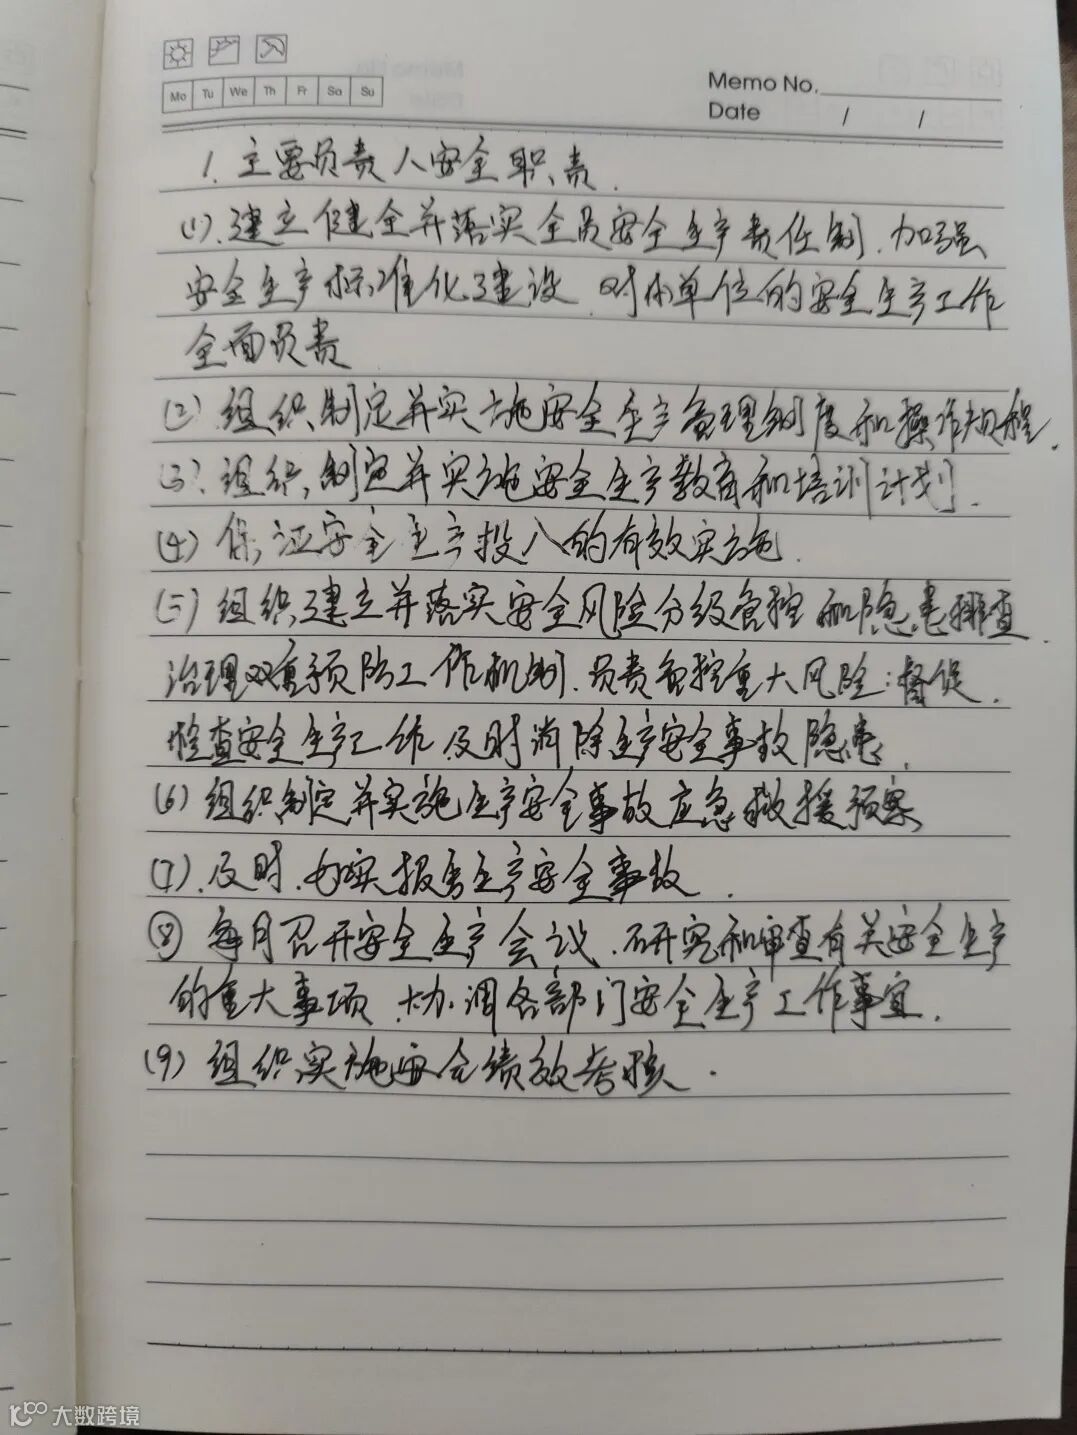 Mo Tu We Th Fr Sa Su
Memo No.
Date / /
1. 主要负责人安全职责.
(1).建立健全并落实全员安全生产责任制.加强
安全生产标准化建设.对本单位的安全生产工作
全面负责
(2).组织制定并实施安全生产管理制度和操作规程.
(3).组织制定并实施安全生产教育和培训计划.
(4)保证安全生产投入的有效实施.
(5)组织建立并落实安全风险分级管控和隐患排查.
治理双重预防工作机制.负责管控重大风险;督促.
检查安全生产工作.及时消除生产安全事故隐患.
(6)组织制定并实施生产安全事故应急救援预案
(7).及时.如实报告生产安全事故.
⑧ 每月召开安全生产会议.研究和审查有关安全生产
的重大事项.协调各部门安全生产工作事宜.
(9)组织实施安全绩效考核.
大数跨境